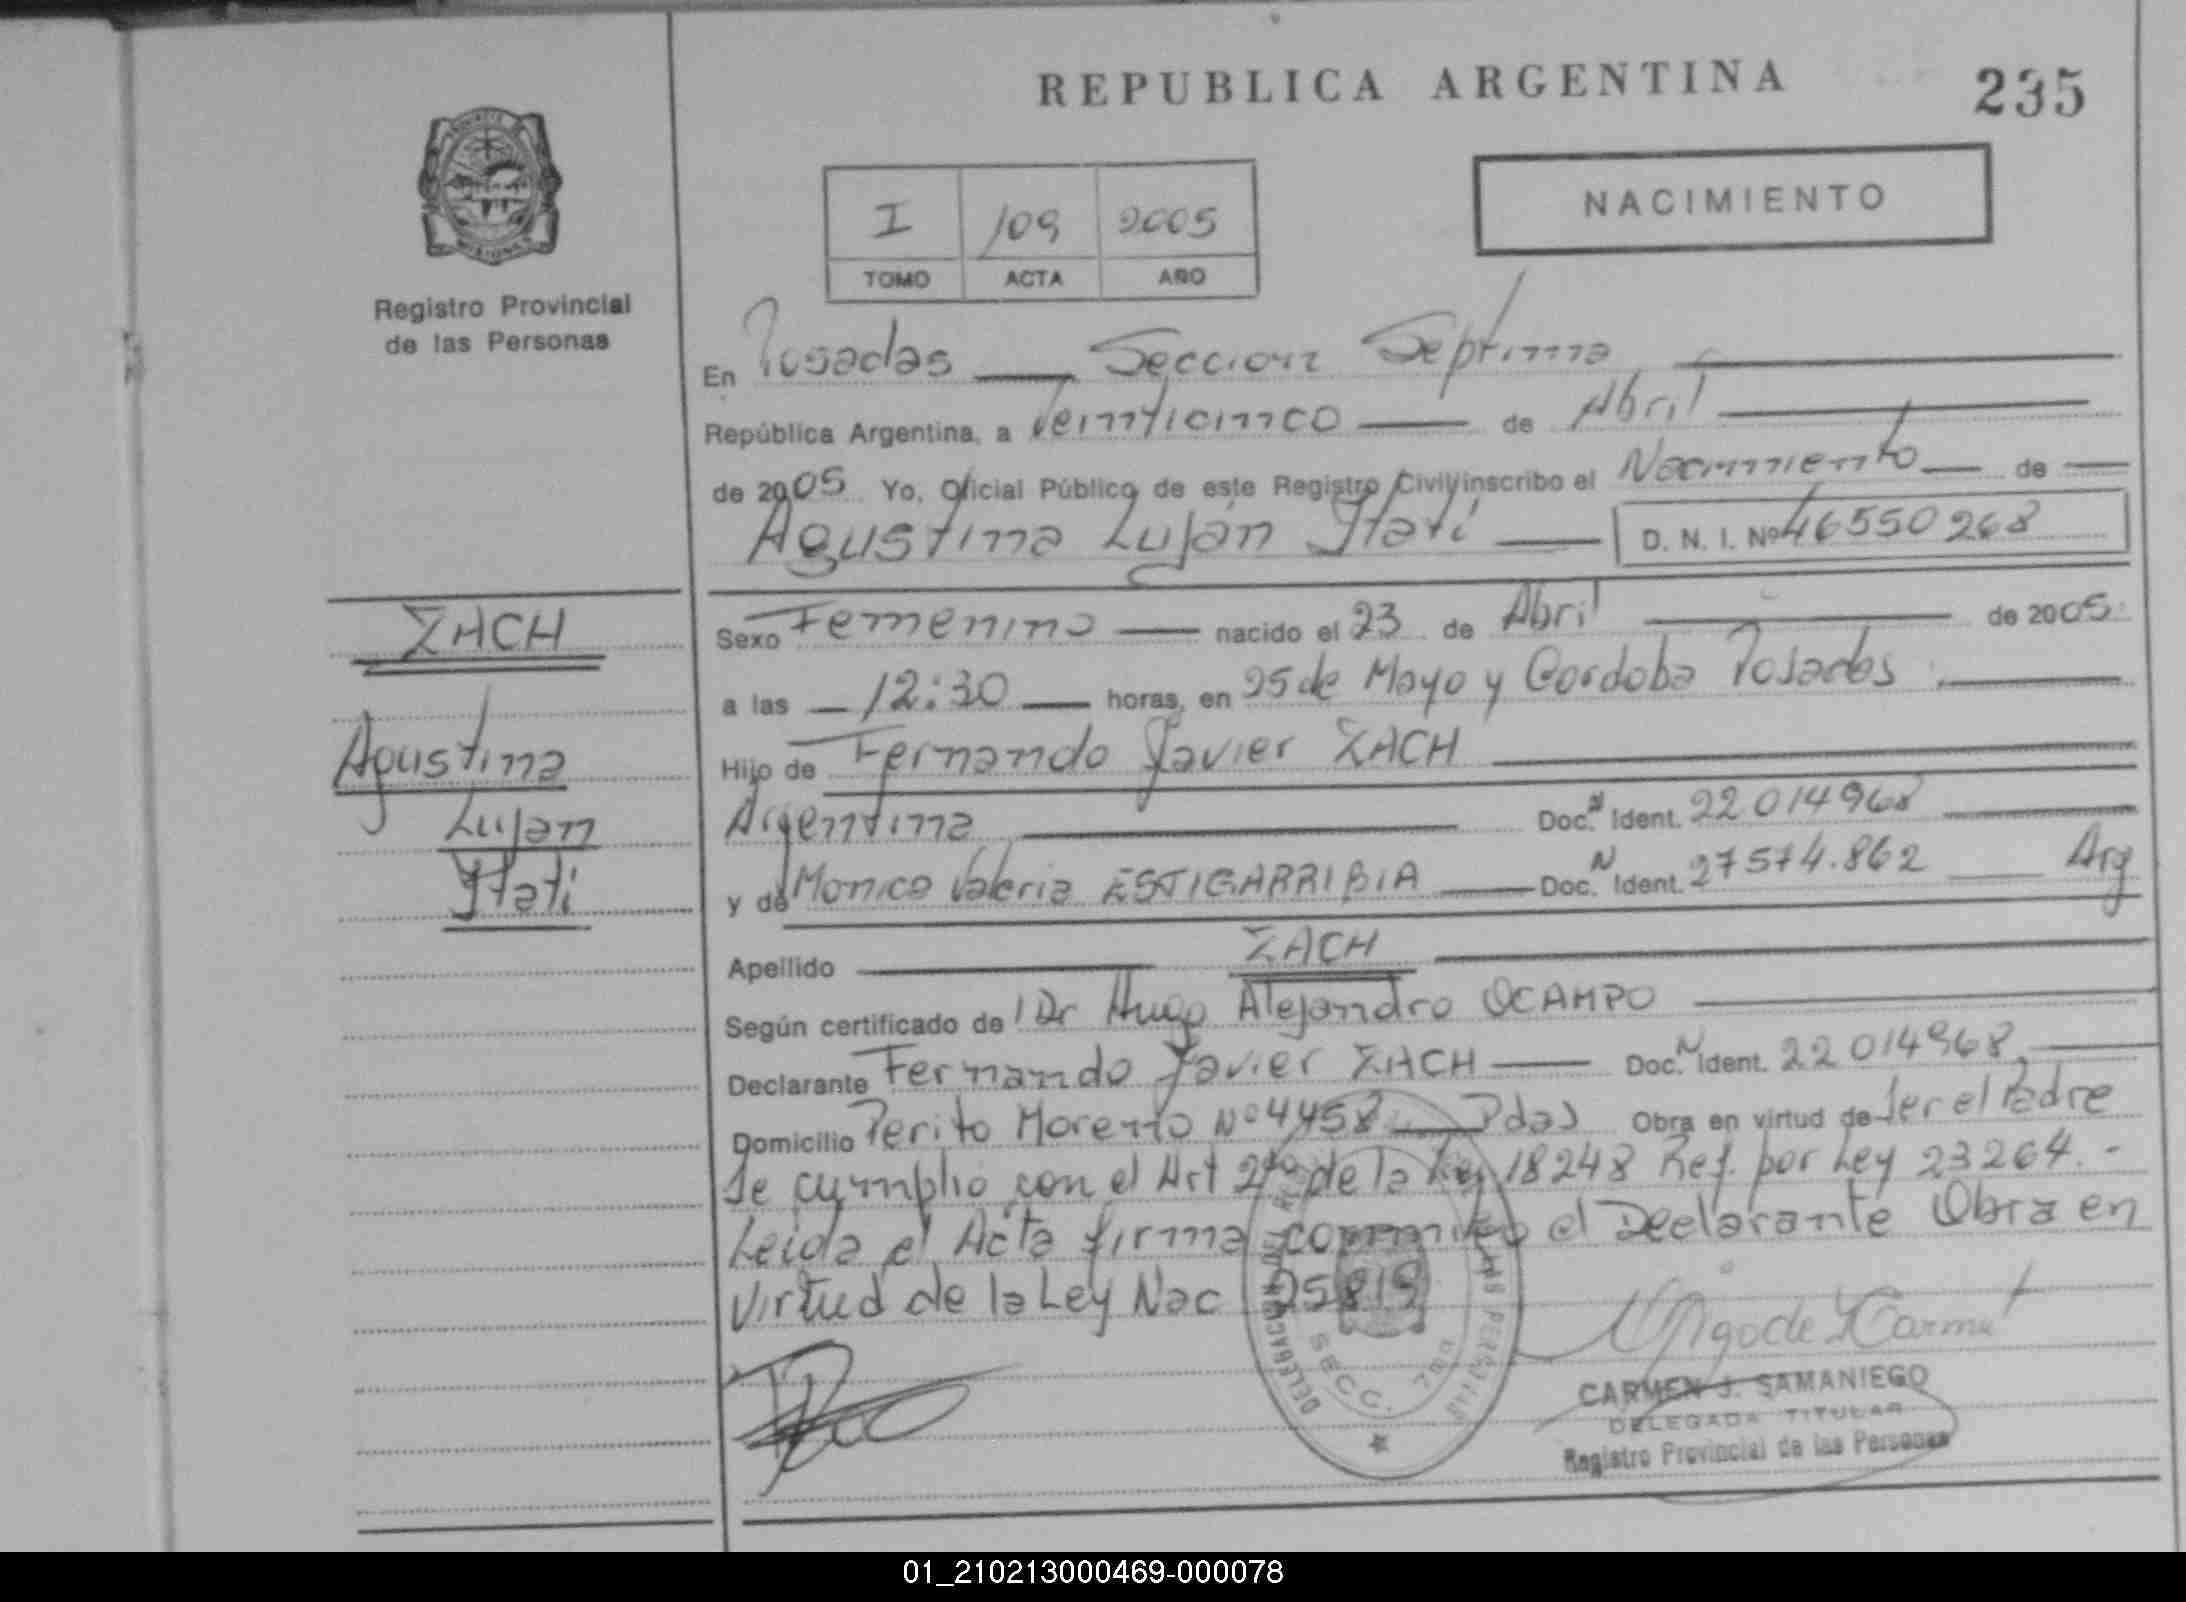 REPUBLICA ARGENTINA
235
PROVINCIA DE MISIONES
Registro Provincial
de las Personas
I 109 2005
TOMO ACTA AÑO
NACIMIENTO
En Posadas Seccion Septima
República Argentina, a Veinticinco de Abril
de 2005 Yo, Oficial Público de este Registro Civil inscribo el Nacimiento de
Agustina Luján Itatí D. N. I. Nº 46550268
ZACH
Agustina
Lujan
Itatí
Sexo Femenino nacido el 23 de Abril de 2005
a las 12:30 horas, en 25 de Mayo y Cordoba Posadas
Hijo de Fernando Javier ZACH
Argentina Doc. N Ident. 22014968
y de Monica Valeria ESTIGARRIBIA Doc. N Ident. 27574.862 Arg
Apellido ZACH
Según certificado de Dr Hugo Alejandro OCAMPO
Declarante Fernando Javier ZACH Doc. N Ident. 22014968
Domicilio Perito Moreno Nº 4458 Pdas Obra en virtud de ser el Padre
Se cumplio con el Art 2do de la Ley 18248 Ref. por Ley 23264.-
Leida el Acta firma conmigo el Declarante Obra en
virtud de la Ley Nac 25819
SECC. 7ma
CARMEN J. SAMANIEGO
DELEGADA TITULAR
Registro Provincial de las Personas
01_210213000469-000078